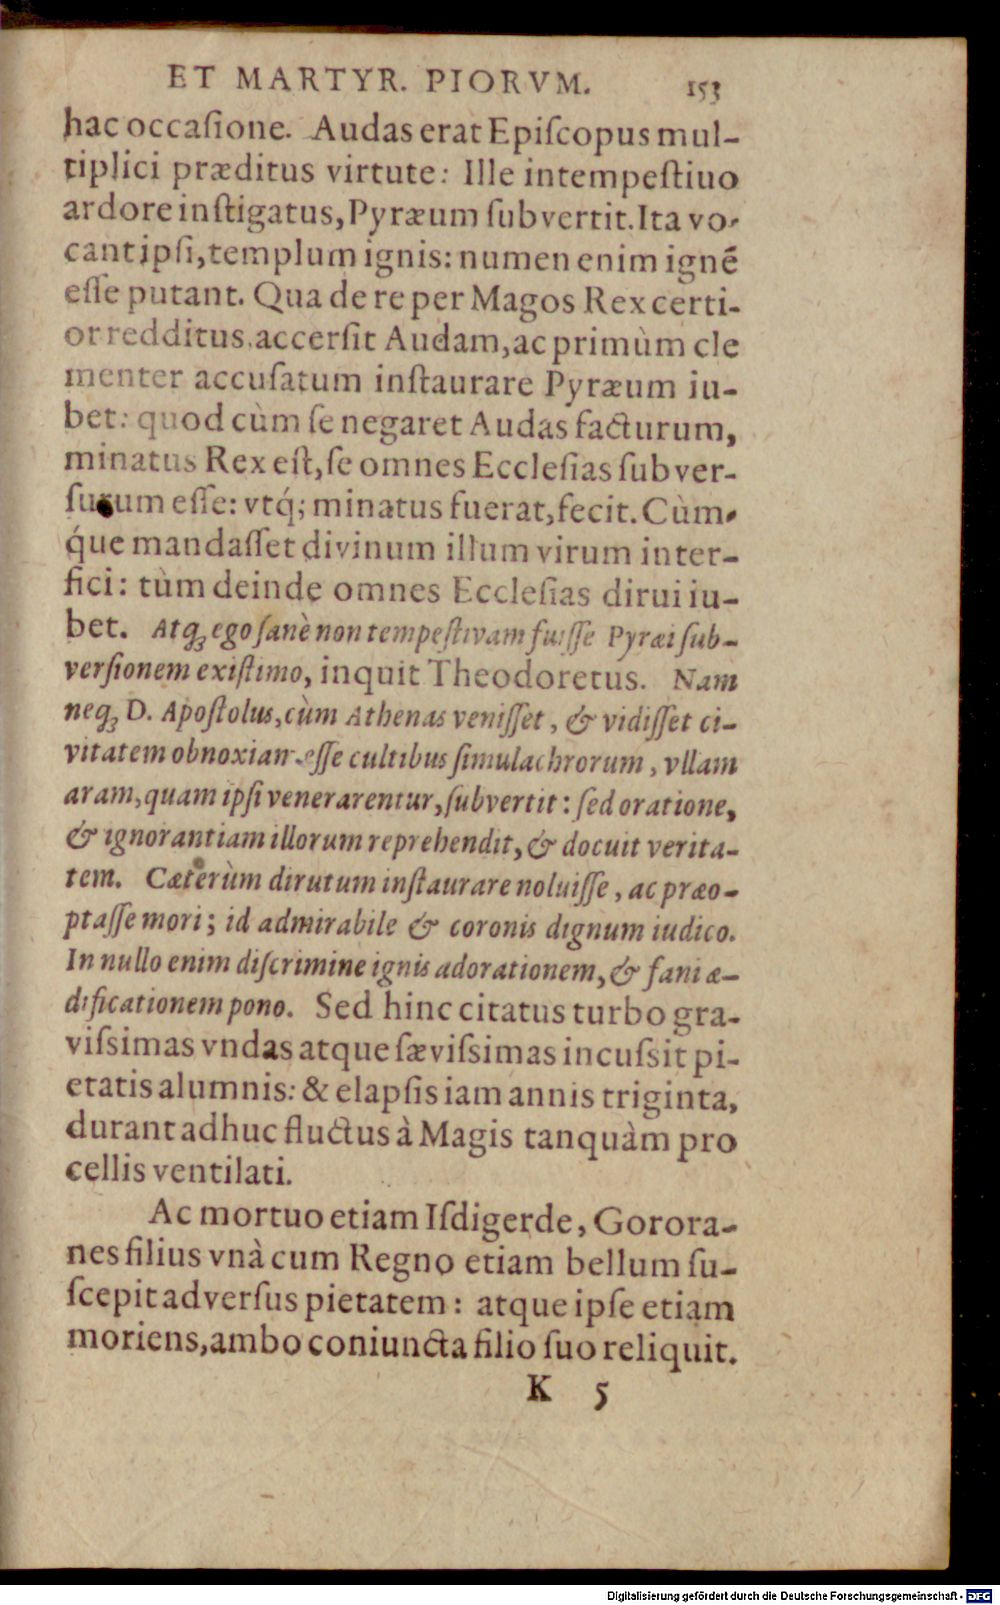 ET MARTYR. PIORVM. 153
hac occaſione. Audas erat Epiſcopus mul-
tiplici præditus virtute: Ille intempeſtiuo
ardore inſtigatus, Pyræum ſubvertit. Ita vo-
cant ipſi, templum ignis: numen enim ignē
eſſe putant. Qua de re per Magos Rex certi-
or redditus, accerſit Audam, ac primùm cle
menter accuſatum inſtaurare Pyræum iu-
bet: quod cùm ſe negaret Audas facturum,
minatus Rex eſt, ſe omnes Eccleſias ſubver-
ſurum eſſe: vtq́; minatus fuerat, fecit. Cùm-
q́ue mandaſſet divinum illum virum inter-
fici: tùm deinde omnes Eccleſias dirui iu-
bet. Atqꝫ ego ſanè non tempeſtivam fuiſſe Pyræi ſub-
verſionem exiſtimo, inquit Theodoretus. Nam
neqꝫ D. Apoſtolus, cùm Athenas veniſſet, & vidiſſet ci-
vitatem obnoxiam eſſe cultibus ſimulachrorum, vllam
aram, quam ipſi venerarentur, ſubvertit: ſed oratione,
& ignorantiam illorum reprehendit, & docuit verita-
tem. Cæterùm dirutum inſtaurare noluiſſe, ac præo-
ptaſſe mori; id admirabile & coronis dignum iudico.
In nullo enim diſcrimine ignis adorationem, & fani æ-
dificationem pono. Sed hinc citatus turbo gra-
viſsimas vndas atque ſæviſsimas incuſsit pi-
etatis alumnis: & elapſis iam annis triginta,
durant adhuc fluctus à Magis tanquàm pro
cellis ventilati.
Ac mortuo etiam Iſdigerde, Gorora-
nes filius vnà cum Regno etiam bellum ſu-
ſcepit adverſus pietatem: atque ipſe etiam
moriens, ambo coniuncta filio ſuo reliquit.
K 5
Digitalisierung gefördert durch die Deutsche Forschungsgemeinschaft - DFG